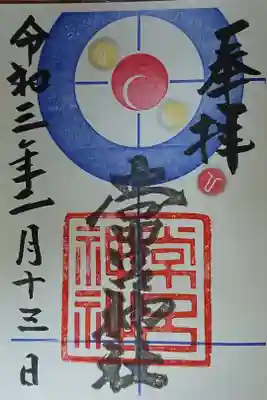 奉拝
常呂神社
常呂
神社
令和三年二月十三日